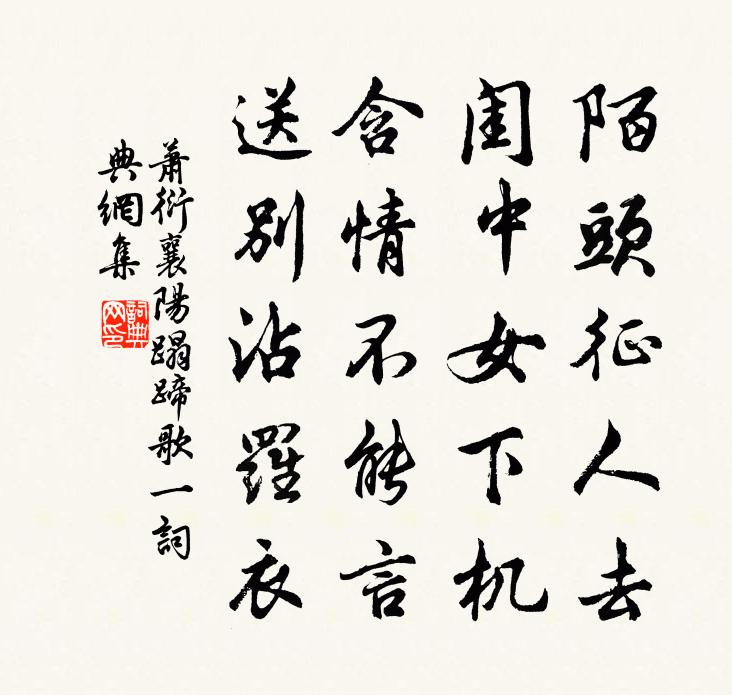 陌頭征人去
闺中女下机
含情不能言
送别沾羅衣
蕭衍襄陽蹋蹄歌一詞
典網集
詞典網印